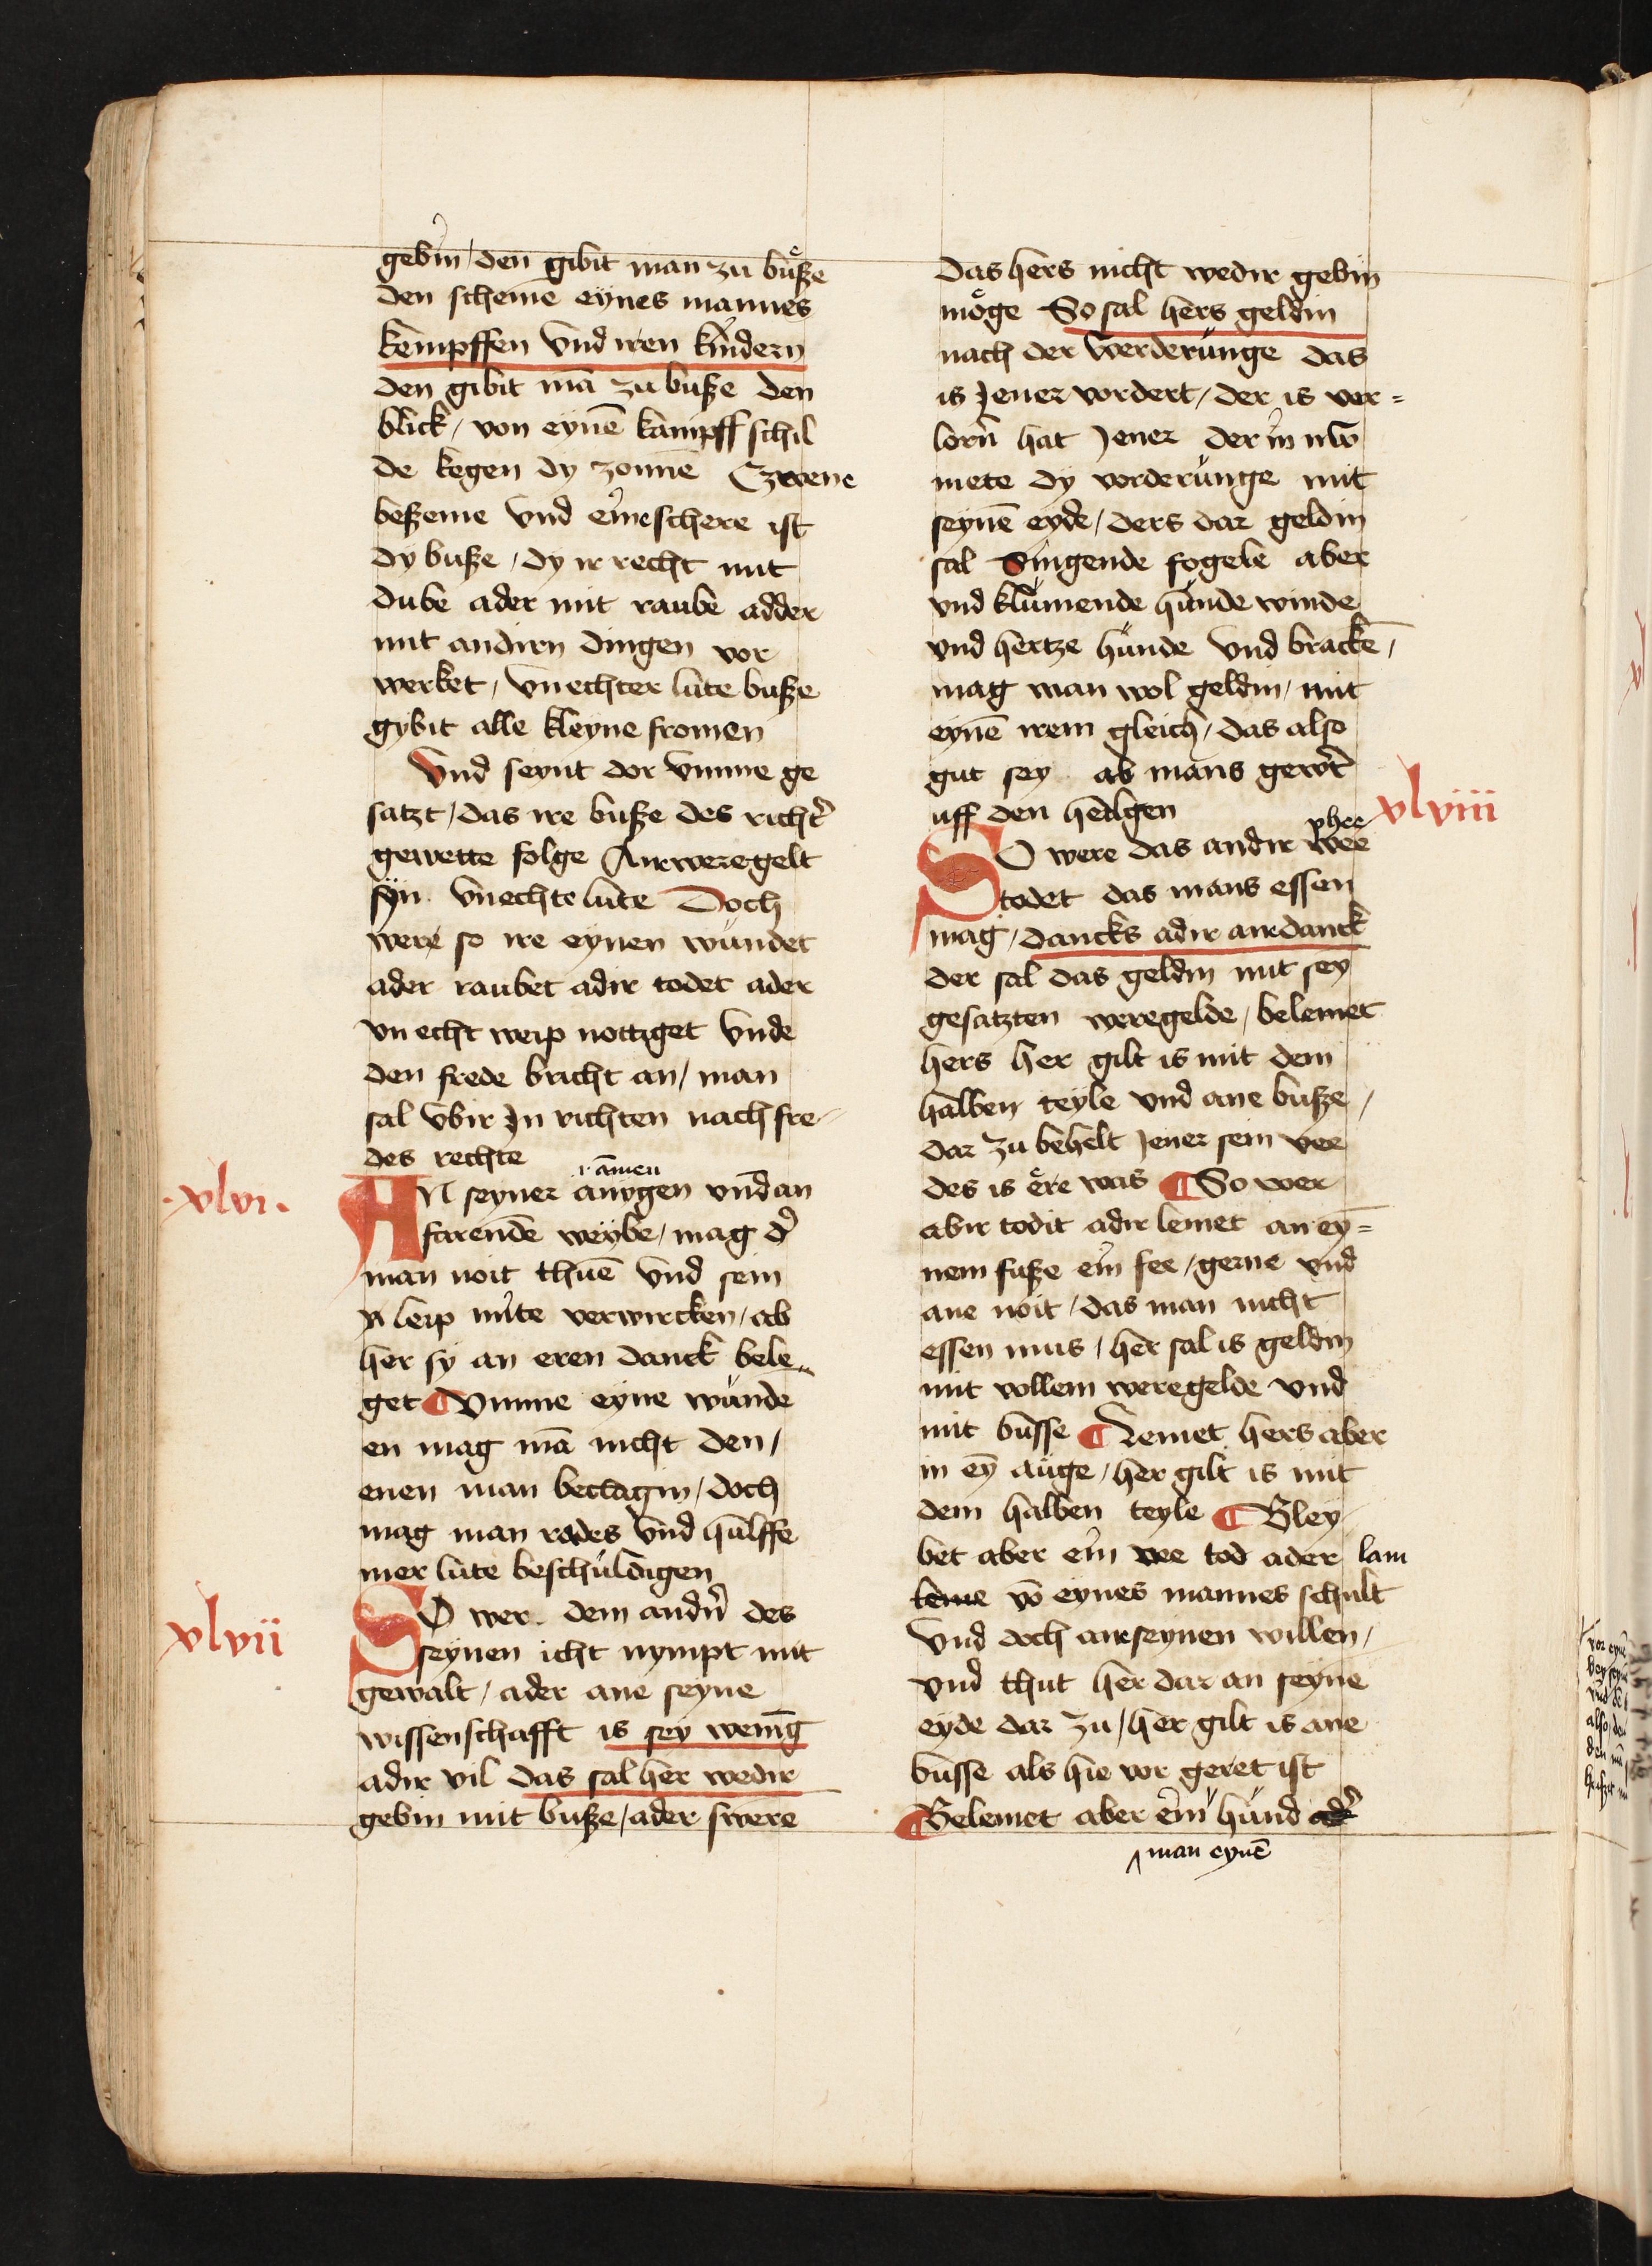 gebin / den gibit man zu buͤße
den scheme eynes mannes
kempffen vnd iren kindern
den gibit mā zu buße den
blick / von eynē kampff schil
de kegen dy zonne Czwene
beßeme vnd eine schere ist
dy buße / dy ir recht mit
dube ader mit raube adder
mit andirn dingen vor
werket / vnechter lute buße
gybit alle kleyne fromen
Vnd seynt dor vmme ge
satzt / das ire buße des richt̓
gewette folge Anewergelt
syn vnechte lute Doch
were so ire eynen wundet
ader raubet adir todet ader
vn echt weip nottiget vnde
den frede bricht an / man
sal vbir in richten nach fre-
des rechte
·xlvi·
amien
AN seyner amygen vnd an
farende weybe / mag d̓
man noit thuē vnd sein
leip mite verwircken / ab
her sy an eren danck bele-
get ¶ Vmme eyne wunde
en mag mā nicht den /
enen man beclagin / doch
mag man rades vnd hulffe
mer lute beschuldigen
xlvii
SO wer dem andn̓ des
seynen icht nympt mit
gewalt / ader ane seyne
wissenschafft is sey wenig
adir vil das sal her wedir
gebin mit buße / ader swere
das hers nicht wedir gebin
moͤge So sal hers geldin
nach der werderunge das
is Jener vordert / der is ver=
lorn̄ hat Jener der in mẏ
mete dy vorderunge mit
seynē eyde / ders dar geldin
sal Singende fogele aber
vnd klumende hunde winde
vnd hertze hunde vnd brackē /
mag man wol geldin / mit
eynē irem gleich / das also
gut sey ab mans gew̓t
uff den heilgen
xlviii
vhee
SO were das andir wee
todet das mans essen
mag / dancks adir anedanck
der sal das geldin mit sey
gesatzten weregelde / belemet
hers her gilt is mit dem
halben teyle vnd ane buße /
dar zu behelt Jener sein vee
des is eͤre was ¶ So wer
abir todit adir lemet an ey=
nem fuße ein fee / gerne vnd
ane noit / das man nicht
essen mus / her sal is geldin
mit vollem weregelde vnd
mit busse ¶ Lemet hers aber
in ey̅ auge / her gilt is mit
dem halben teyle ¶ Bley
bet aber ein vee tod ader lam
leme vō eynes mannes schult
vnd doch ane seynen willen /
vnd thut her dar an seyne
eyde dar zu / her gilt is ane
busse als hie vor geret ist
¶ Belemet aber ein hund ad̓
man eynē